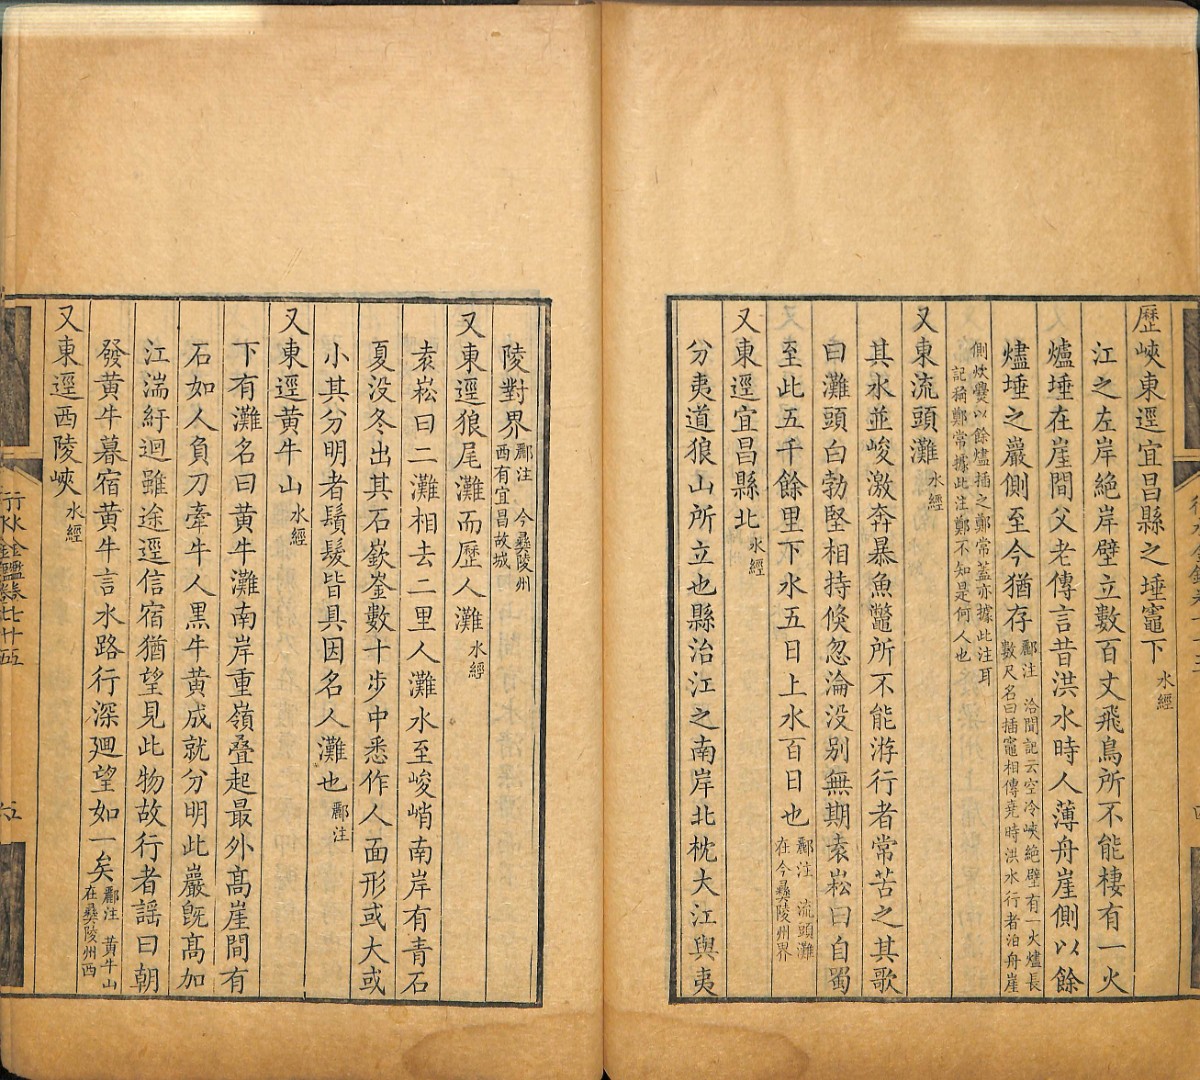 歷峽東逕宜昌縣之埵竈下水經
江之左岸絶岸壁立數百丈飛鳥所不能棲有一火
爐埵在崖間父老傳言昔洪水時人薄舟崖側以餘
燼埵之巖側至今猶存酈注 洽聞記云空冷峽絶壁有一火爐長
數尺名曰插竈相傳堯時洪水行者泊舟崖
側炊㸑以餘燼插之鄭常蓋亦據此注耳
記稱鄭常據此注鄭不知是何人也
又東流頭灘水經
其水並峻激奔暴魚鼈所不能游行者常苦之其歌
曰灘頭白勃堅相持倏忽淪没别無期袁崧曰自蜀
至此五千餘里下水五日上水百日也酈注 流頭灘
在今彞陵州界
又東逕宜昌縣北水經
分夷道狼山所立也縣治江之南岸北枕大江與夷
陵對界酈注 今彞陵州
西有宜昌故城
又東逕狼尾灘而歷人灘水經
袁崧曰二灘相去二里人灘水至峻峭南岸有青石
夏没冬出其石嶔崟數十步中悉作人面形或大或
小其分明者鬚髮皆具因名人灘也酈注
又東逕黄牛山水經
下有灘名曰黄牛灘南岸重嶺叠起最外高崖間有
石如人負刀牽牛人黒牛黄成就分明此巖旣高加
江湍紆迴雖途逕信宿猶望見此物故行者謡曰朝
發黄牛暮宿黄牛言水路行深廻望如一矣酈注 黄牛山
在彞陵州西
又東逕西陵峽水經
行水金鑑卷七十五
五